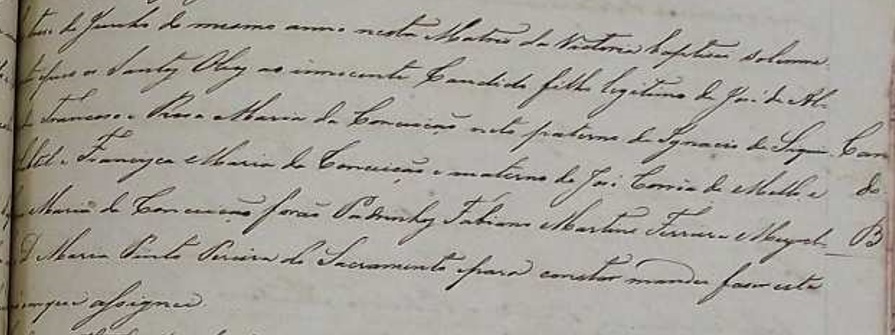 de Junho do mesmo anno nesta Matris da Victoria baptisei solemne
e pus os Santos Oleos ao innocente Candido filho legitimo de José de Al-
Francoso e Rosa Maria da Conceição neto paterno de Ignacio de Siquei- Can
Francisca Maria da Conceição e materno de José Correia de Mello e do
Maria da Conceição forão Padrinhos Fabiano Martins Ferreira e Miguel B
D Maria Pinto Pereira do Sacramento e para constar mandei faser este
em que assignei.